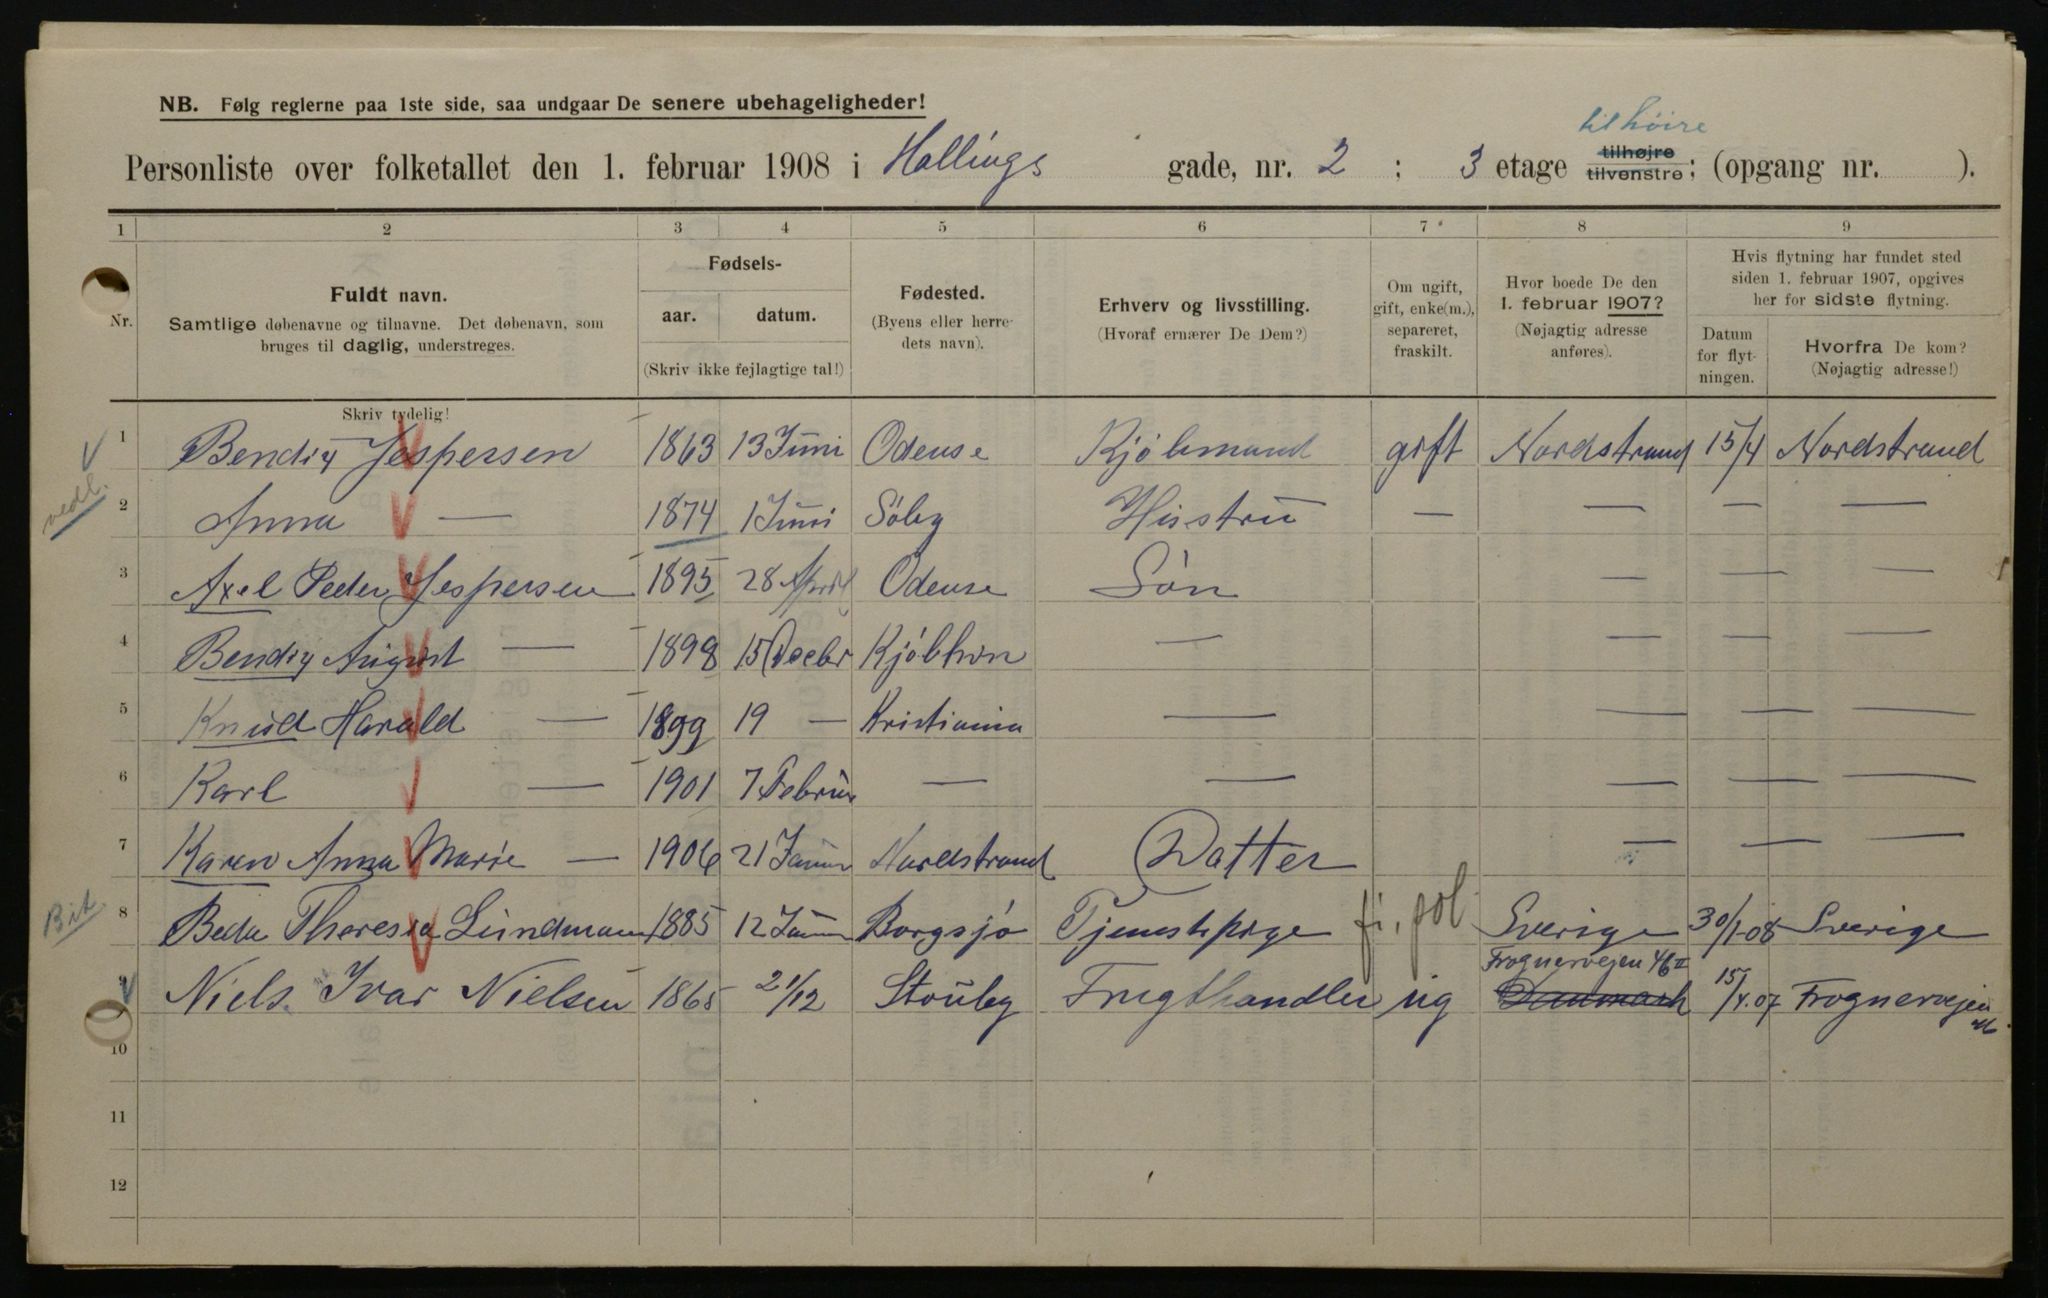 NB. Følg reglerne paa 1ste side, saa undgaar De senere ubehageligheder!
til høire
Personliste over folketallet den 1. februar 1908 i Hallings gade, nr. 2 ; 3 etage tilhøjre tilvenstre; (opgang nr. ).
1 2 3 4 5 6 7 8 9
Nr.
Fuldt navn.
Samtlige døbenavne og tilnavne. Det døbenavn, som
bruges til daglig, understreges.
Skriv tydelig!
Fødsels-
aar. datum.
(Skriv ikke fejlagtige tal!)
Fødested.
(Byens eller herre-
dets navn).
Erhverv og livsstilling.
(Hvoraf ernærer De Dem?)
Om ugift,
gift, enke(m.),
separeret,
fraskilt.
Hvor boede De den
1. februar 1907?
(Nøjagtig adresse
anføres).
Hvis flytning har fundet sted
siden 1. februar 1907, opgives
her for sidste flytning.
Datum
for flyt-
ningen.
Hvorfra De kom?
(Nøjagtig adresse!)
1 Bendix Jespersen 1863 13 Juni Odense Kjøbmand gift Nordstrand 15/4 Nordstrand
vedl.
2 Anna — 1874 1 Juni Søby Hustru — — — —
3 Axel Peder Jespersen 1895 28 April Odense Søn — — —
4 Bendix August — 1898 15 Decbr Kjøbhvn — — — —
5 Knud Harald — 1899 19 — Kristiania — — — —
6 Karl — 1901 7 Februar — — — — —
7 Karen Anna Marie — 1906 21 Januar Nordstrand Datter — — —
Bit.
8 Beda Theresia Lundman 1885 12 Januar Borgsjø Tjenestepige fi. pol Sverige 30/1-08 Sverige
Frognerveien 46 II
9 Niels Ivar Nielsen 1865 21/12 Stouby Frugthandler ug Danmark 15/4.07 Frognerveien
46.
10
11
12